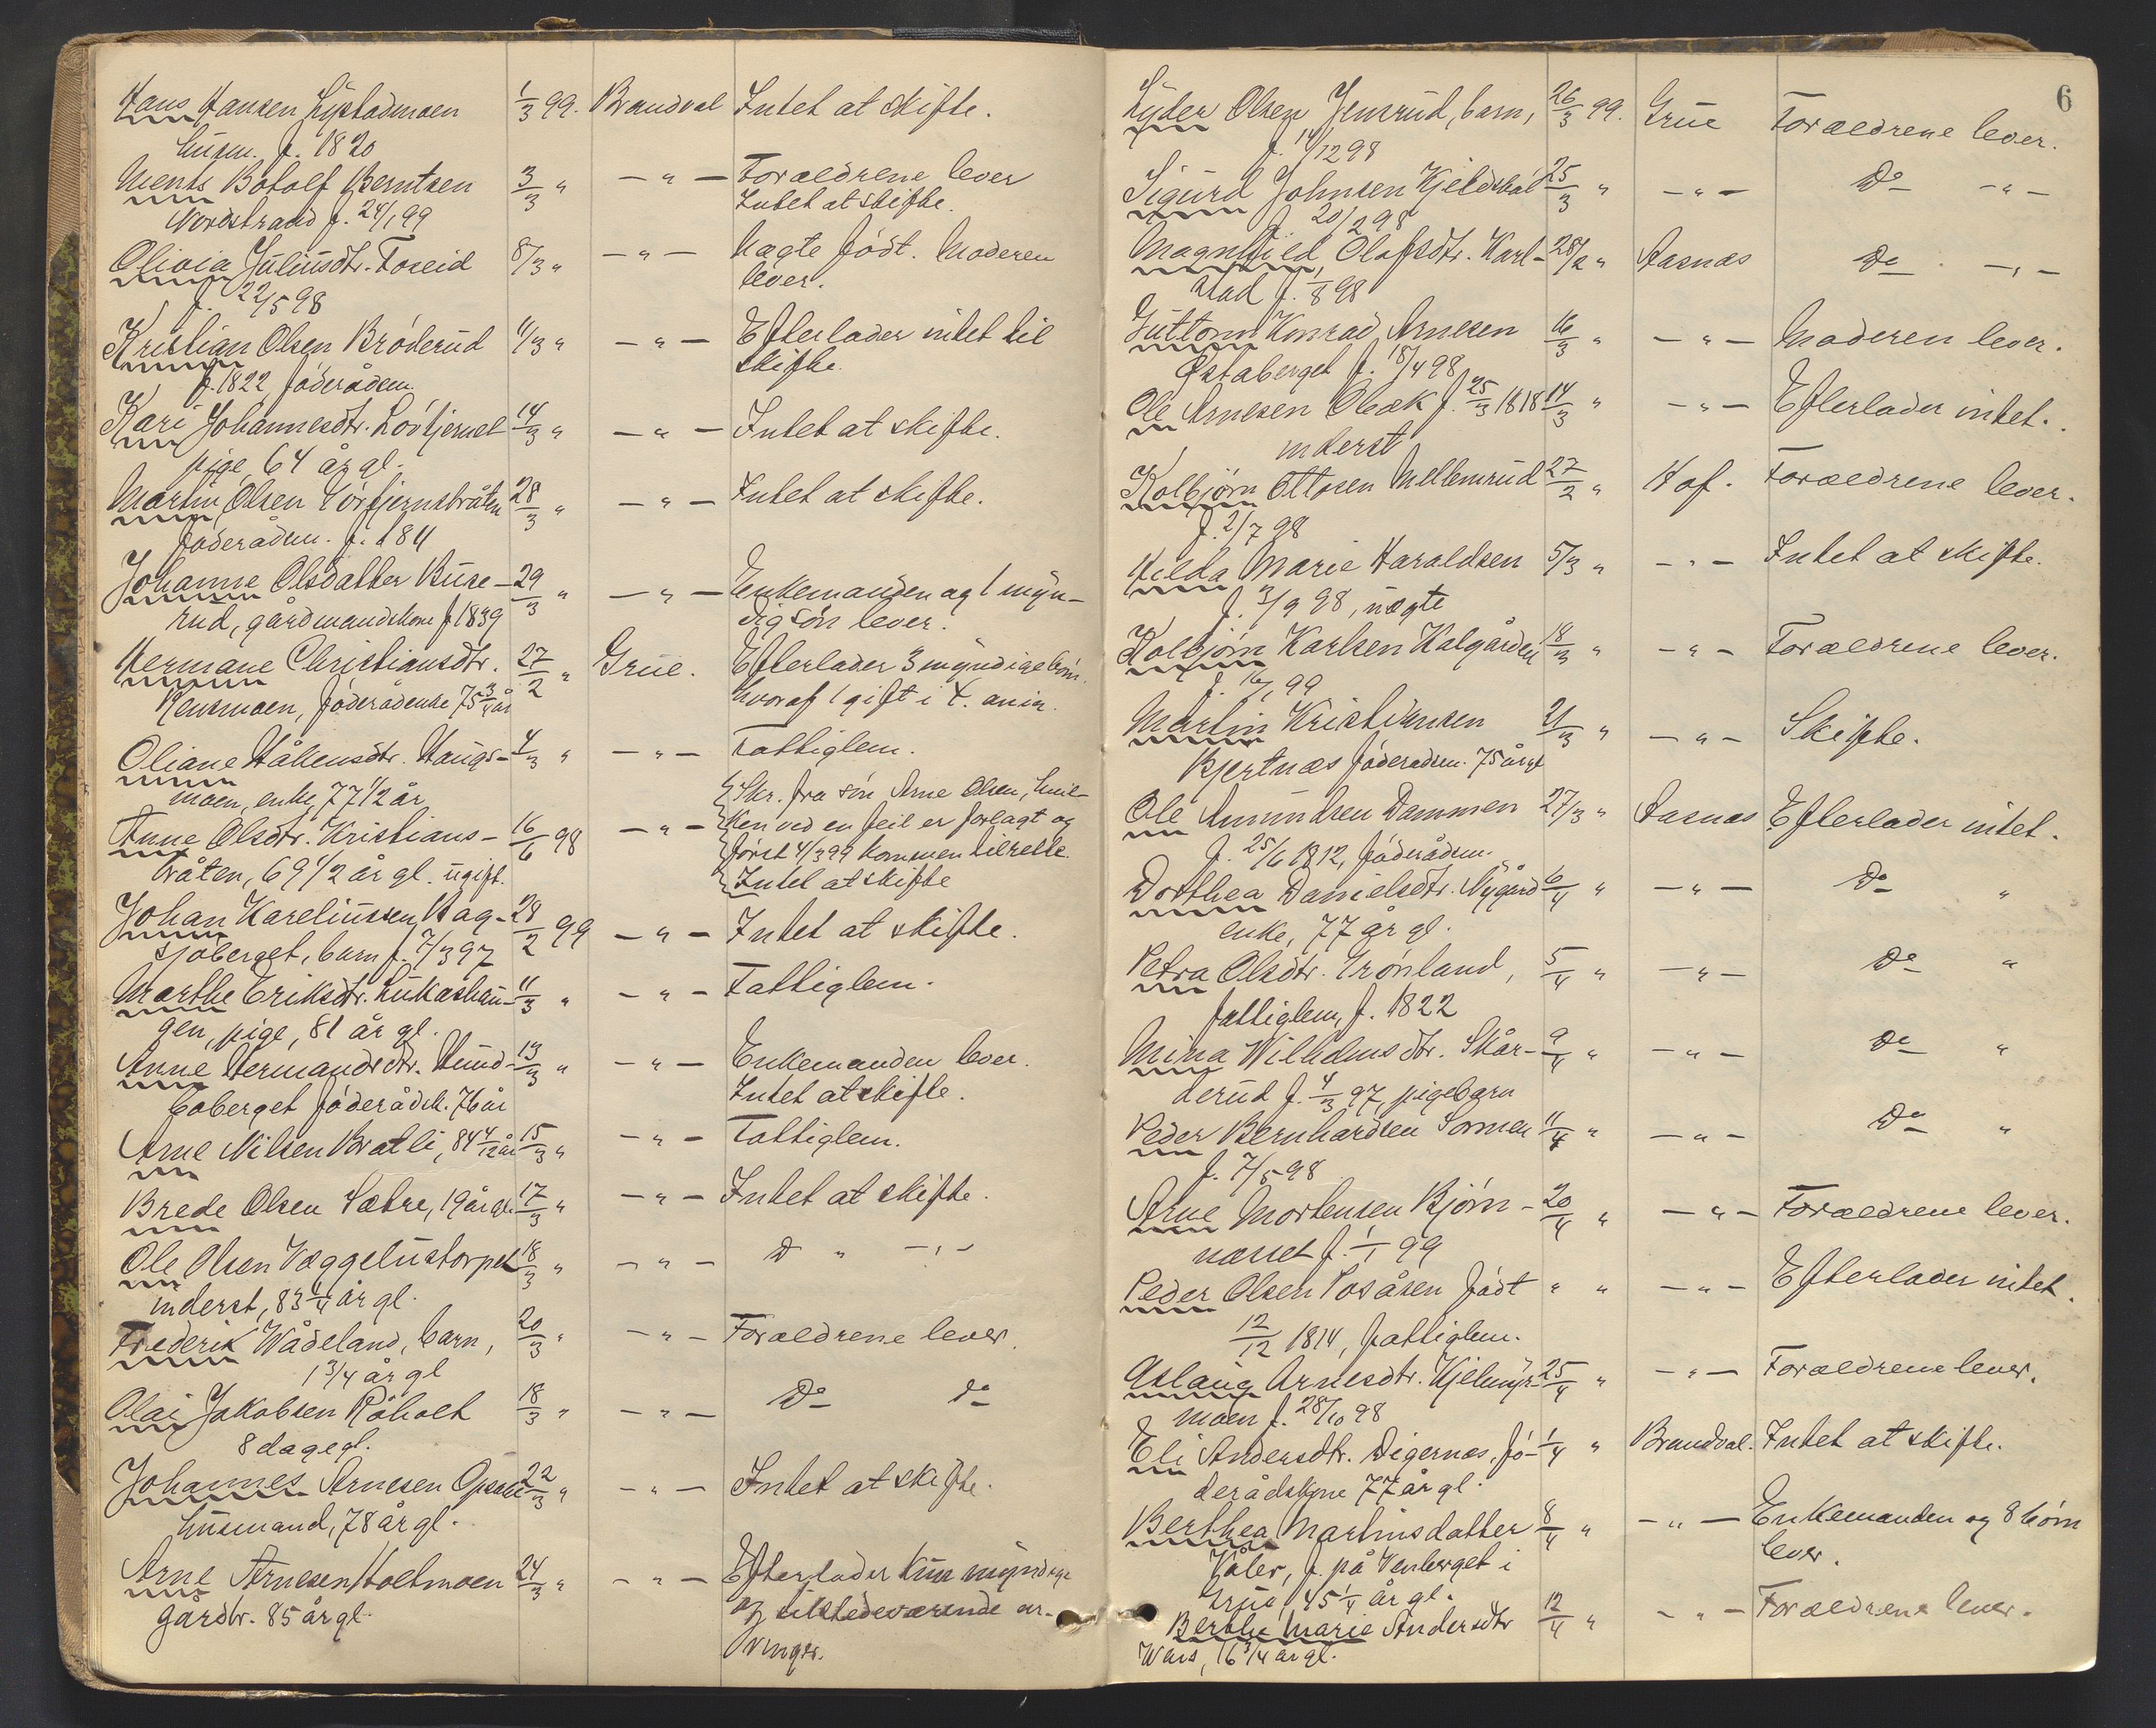 Hans Hansen Lystadmoen 1/3 99. Brandval Intet at skifte.
husm. f. 1820
Ments Botolf Berntsen 3/3 " — " — Forældrene lever
Nordstrand f. 24/1 99 Intet at skifte.
Olivia Juliusdtr. Foseid 8/3 " — " — Uægte født. Moderen
f. 22/5 98 lever.
Kristian Olsen Brøderud 11/3 " — " — Efterlader intet til
f. 1822 føderådsm. skifte.
Kari Johannesdtr. Løvtjernet 14/3 " — " — Intet at skifte.
pige, 64 år gl.
Martin Olsen 28/3 " — " — Intet at skifte.
føderådsm. f. 184
Johanne Olsdatter Buse- 29/3 " — " — Enkemanden og 1 myn-
rud, gårdmandskone f 1839 dig søn lever.
Hermane Christiansdtr. 27/2 " Grue. Efterlader 3 myndige børn
føderådsenke 75 3/4 år hvoraf 1 gift i
Oliane Håkensdtr. Haugs- 4/3 " — " — Fattiglem.
moen, enke, 77 1/2 år
Anne Olsdtr. Kristians- 16/6 98 — " — Skr. fra søn Arne Olsen, hvil-
bråten, 69 1/2 år gl. ugift. ken ved en feil er forlagt og
først 4/3 99 kommen tilrette.
Intet at skifte
Johan Kareliussen Hag- 28/2 99 — " — Intet at skifte.
sjøberget, barn f. 7/3 97
Marthe Eriksdtr. Lukashau- 11/3 " — " — Fattiglem.
gen, pige, 81 år gl.
Anne Hermandsdtr. Rund- 13/3 " — " — Enkemanden lever.
boberget føderådsk. 76 år Intet at skifte.
Arne Nilsen Bratli, 84 4/12 år 15/3 " — " — Fattiglem.
Brede Olsen Sætre, 19 år gl. 17/3 " — " — Intet at skifte.
Ole Olsen Væggelustorpet 18/3 " — " — D " — " —
inderst, 83 1/4 år gl.
Frederik Wådeland, barn, 20/3 " — " — Forældrene lever.
1 3/4 år gl
Olai Jakobsen Råholt 18/3 " — " — Do do
8 dage gl.
Johannes Arnesen Opsal 22/3 " — " — Intet at skifte.
husmand, 78 år gl.
Arne Arnesen Holtmoen 24/3 " — " — Efterlader kun myndige
gårdbr. 85 år gl. og tilstedeværende ar-
vinger.
6
Lyder Olsen Jensrud, barn, 26/3 99. Grue Forældrene lever.
f. 14/12 98
Sigurd Johnsen 25/3 " — " — Do — " —
f. 20/2 98
Magnhild Olafsdtr. Karl- 28/2 " Aasnæs Do — " —
stad f. 1/8 98
Guttorm Konrad Arnesen 16/3 " — " — Moderen lever.
Østaberget f. 18/4 98
Ole Arnesen Obæk f. 25/3 1818 14/3 " — " — Efterlader intet.
inderst
Kolbjørn Ottosen Mellemrud 27/2 " Hof. Forældrene lever.
f. 2/7 98
Hilda Marie Haraldsen 5/3 " — " — Intet at skifte.
f. 3/9 98, uægte
Kolbjørn Karlsen Kalgården 18/3 " — " — Forældrene lever.
f. 16/1 99
Martin Kristiansen 21/3 " — " — Skifte.
Kjertnæs føderådsm. 75 år gl
Ole Amundsen Dammen 27/3 " Aasnæs Efterlader intet.
f. 25/6 1812, føderådsm.
Dorthea Danielsdtr. Nygård 6/4 " — " — Do "
enke, 77 år gl.
Petra Olsdtr. Grønland, 5/4 " — " — Do "
fattiglem, f. 1822
Mina Wilhelmsdtr. Skår- 9/4 " — " — Do "
derud f. 4/3 97, pigebarn
Peder Bernhardsen Sormen 11/4 " — " — Do "
f. 7/5 98
Arne Mortensen Bjørn- 20/4 " — " — Forældrene lever.
næsset f. 1/1 99
Peder Olsen Posåsen født " " — " — Efterlader intet.
12/12 1814, fattiglem.
Aslaug Arnesdtr. Kjelmyr- 25/4 " — " — Forældrene lever.
moen f. 28/10 98
Eli Andersdtr. Digernæs, fø- 1/4 " Brandval. Intet at skifte.
derådskone 77 år gl.
Berthea Martinsdatter 8/4 " — " — Enkemanden og 8 børn
Våler, f. på Venberget i lever.
Grue, 45 1/4 år gl.
Berthe Marie Andersdtr 12/4 " — " — Forældrene lever.
16 3/4 år gl.